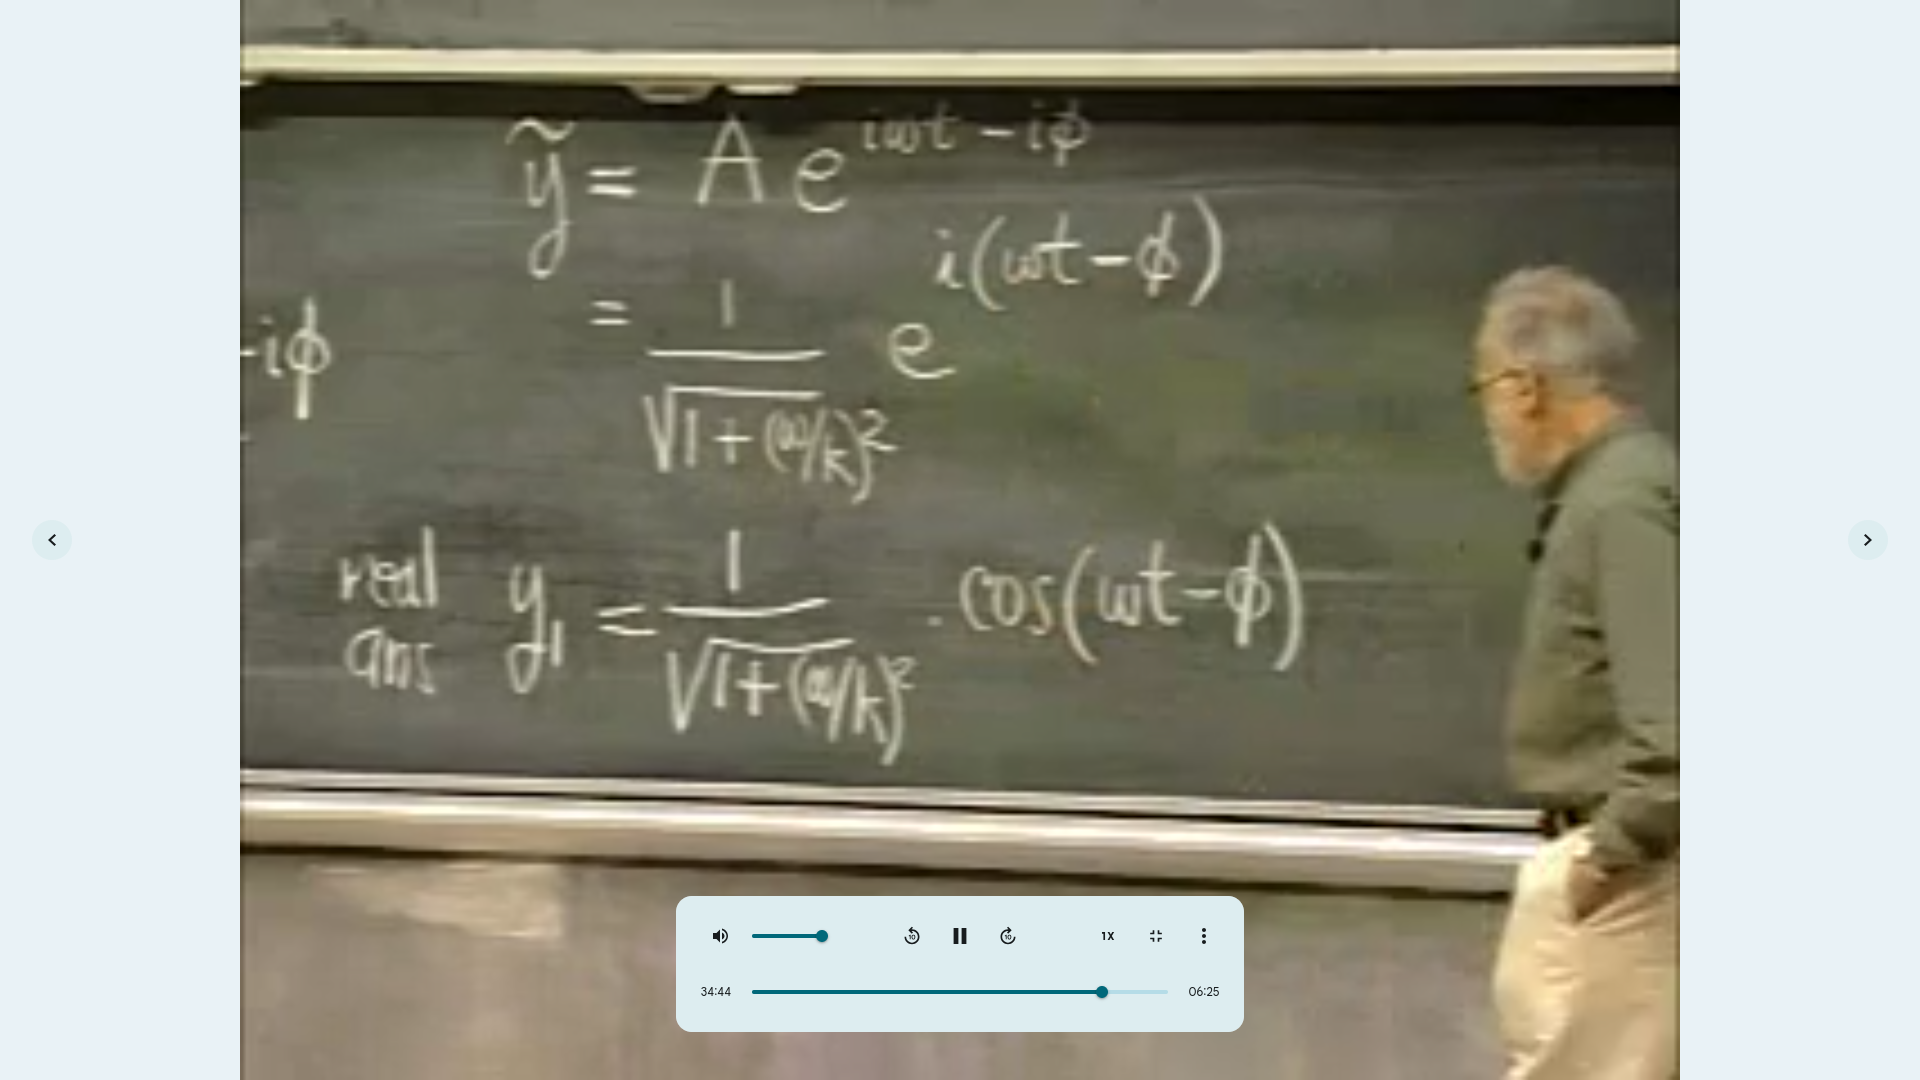 ỹ = A e^{iωt - iϕ}
-iϕ
= 1/√(1+(ω/k)²) e^{i(ωt-ϕ)}
real ans y₁ = 1/√(1+(ω/k)²) · cos(ωt-ϕ)
10
10
1X
34:44
06:25